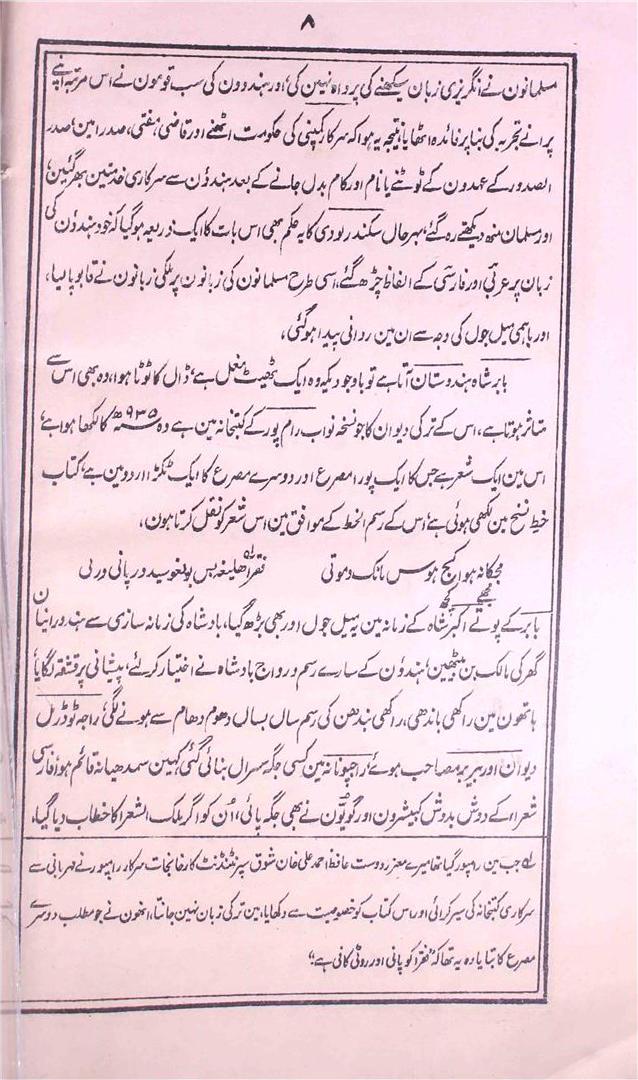 ۸
مسلمانون نے انگریزی زبان سیکھنے کی پرواہ نہین کی، اور ہندوون کی سب قومون نے اس مرتبہ اپنے
پرانے تجربہ کی بنا پر فائدہ اٹھایا، نتیجہ یہ ہوا کہ سرکار کمپنی کی حکومت اٹھنے اور قاضی، مفتی، صدر امین، صدر
الصدور کے عہدون کے ٹوٹنے یا نام اور کام بدل جانے کے بعد ہندؤن سے سرکاری خدمتین بھر گئین،
اور مسلمان منھ دیکھتے رہ گئے، بہر حال سکندر لودی کا یہ حکم بھی اس بات کا ایک ذریعہ ہو گیا کہ خود ہندؤن کی
زبان پر عربی اور فارسی کے الفاظ چڑھ گئے، اسی طرح مسلمانون کی زبانون پر ملکی زبانون نے قابو پا لیا،
اور باہمی میل جول کی وجہ سے ان مین روانی پیدا ہو گئی،
بابر شاہ ہندوستان آتا ہے تو باوجودیکہ وہ ایک ٹھیٹ مغل ہے، ڈال کا ٹوٹا ہوا، وہ بھی اس سے
متاثر ہوتا ہے، اس کے ترکی دیوان کا جو نسخہ نواب رام پور کے کتبخانہ مین ہے وہ ۹۳۵ھ کا لکھا ہوا ہے،
اس مین ایک شعر ہے جس کا ایک پورا مصرع اور دوسرے مصرع کا ایک ٹکڑا اردو مین ہے، کتاب
خط نسخ مین لکھی ہوئی ہے، اس کے رسم الخط کے موافق مین اس شعر کو نقل کرتا ہون،
مجکا نہ ہوا کج ہوس مانک و موتی فقرا ھلیغہ بس بولغوسیدور پانی و رتی
مجھے کچھ
بابر کے پوتے اکبر شاہ کے زمانہ مین یہ میل جول اور بھی بڑھ گیا، بادشاہ کی زمانہ سازی سے ہندورانیان
گھر کی مالک بن بیٹھین، ہندؤن کے سارے رسم و رواج بادشاہ نے اختیار کر لئے، پیشانی پر قشقہ لگایا،
ہاتھون مین راکھی باندھی، راکھی بندھن کی رسم سال بسال دھوم دھام سے ہونے لگی، راجہ ٹوڈرمل
دیوان اور بیربر مصاحب ہوئے، راجپوتانہ مین کسی جگہ سسرال بنائی گئی کہین سمدھیانہ قائم ہوا، فارسی
شعراء کے دوش بدوش کبیشرون اور گویّون نے بھی جگہ پائی، اُن کو اگر ملک الشعرا کا خطاب دیا گیا،
لہ جب مین رامپور گیا تھا میرے معزز دوست حافظ احمد علی خان شوق سپرنٹنڈنٹ کارخانجات سرکار رامپور نے مہربانی سے
سرکاری کتبخانہ کی سیر کرائی، اور اس کتاب کو خصوصیت سے دکھایا، مین ترکی زبان نہین جانتا، انھون نے جو مطلب دوسرے
مصرع کا بتایا وہ یہ تھا کہ "فقرا کو پانی اور روٹی کافی ہے"